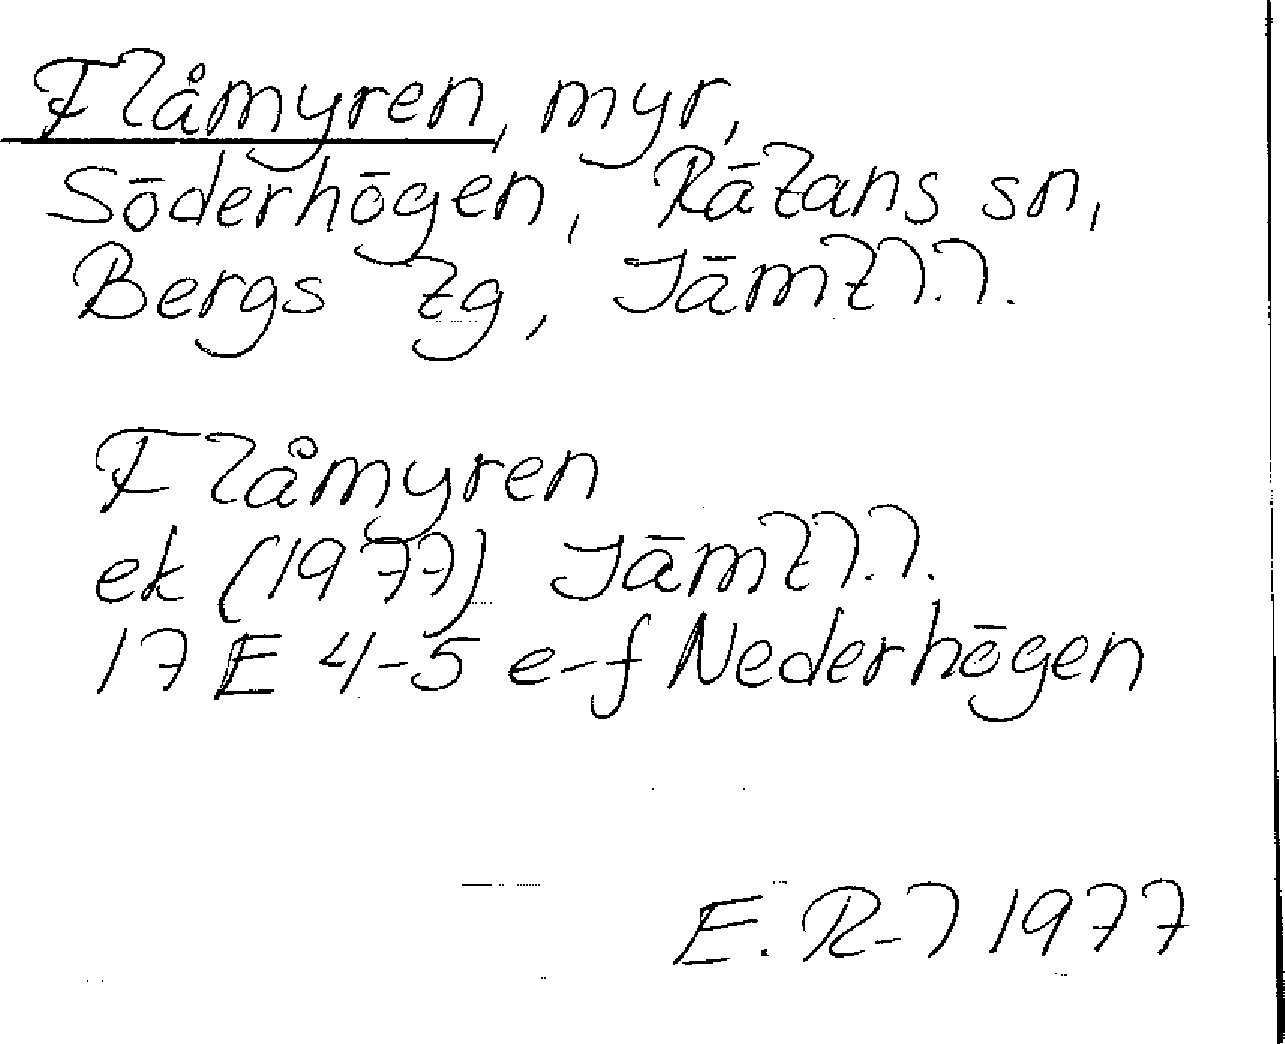 Flåmyren, myr,
Söderhögen, Rätans sn,
Bergs tg, Jämtl.l.
Flåmyren
ek (1977) Jämtl.l.
17 E 4-5 e-f Nederhögen
E. R-l 1977